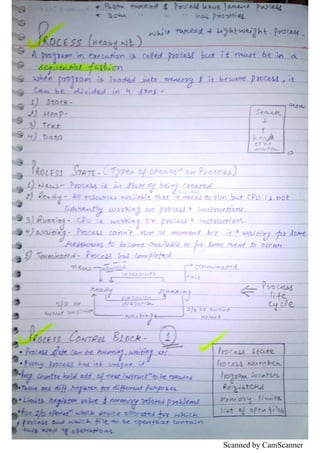 • Both thread & Process have parallel process
• Both " " has priorities.
while thread = lightweight process.
PROCESS (Heavy wt)
A program in execution is called process but it must be in a
sequential fashion
When program is loaded into memory & it become process, it
can be divided in 4 steps -
1) Stack -
2) Heap -
3) Text
4) Data
Stack
↓
↑
heap
max
0
PROCESS STATE - (Types of operan on Process)
1) New - Process is in state of being created
2) Ready - All resources available that is needs to run but CPU is not
currently working on process's instructions
3) Running - CPU is working on process's instruction
4) Waiting - Process can't run at moment bcz it's waiting for some
resources to become available or for some event to occur.
5) Terminated - Process has completed
new
terminated
interrupts
exit
Ready
Running
dispatch
I/O or
event completion
I/O or event
waiting
⇐ Process
life
cycle
PROCESS CONTROL BLOCK - (1)
• Process state can be running, waiting etc
• Every process has its unique id
• Prog. counter hold add. of next instructn to be executed
• There are diff. Register for different purposes
• Limits register value & memory related problems
• For I/O operan which device allocated for which
process and which file to be open that contain
this kind of operations
Process State
Process Number
Program Counter
Registers
Memory limits
list of open files
Scanned by CamScanner